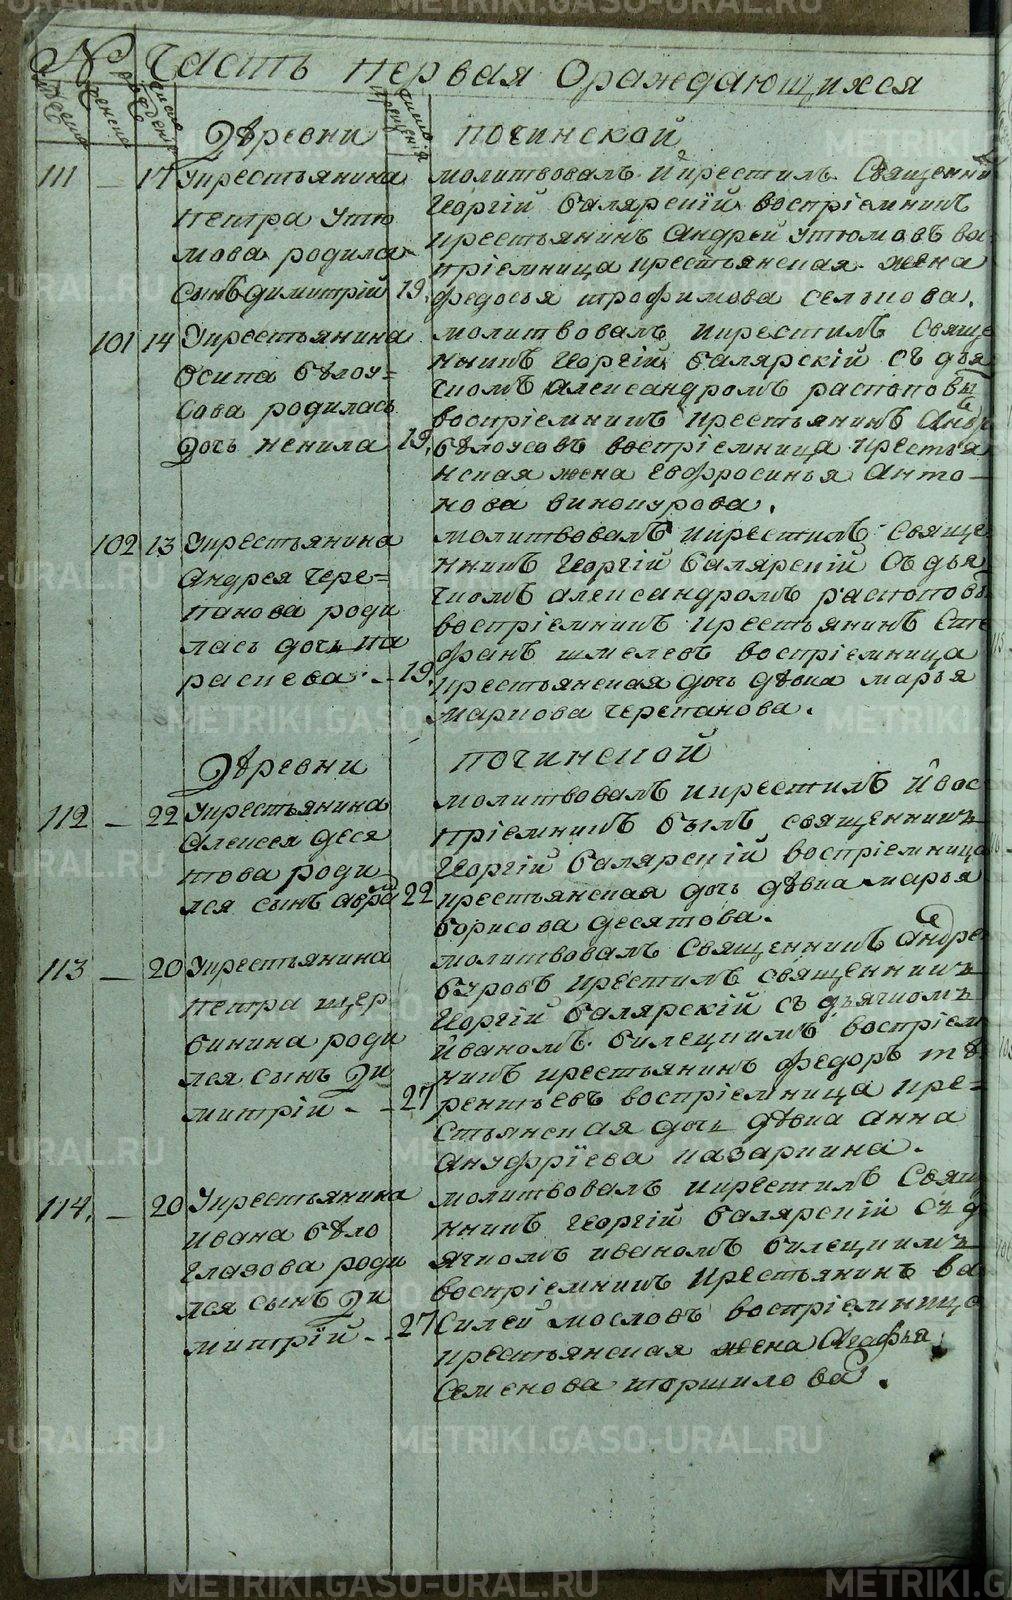 № Часть первая Ораждающихся
Деревни починской
111 — 17 Укрестьянина
Петра Утю
мова родила
сынъ димитрій 19.
молитвовалъ и крестилъ Священни
Георгій балярскій воспріемникъ
крестьянинъ Андрей утюмовъ во
пріемница крестьянская жена
федосья трофимова селкова.
101 14 Укрестьянина
Осипа бѣлоу=
сова родилась
дочь ненила 19.
молитвовалъ икрестилъ свяще
нникъ Георгій балярскій съ дья
чкомъ александромъ распоповы
воспріемникъ крестьянинъ Андр
бѣлоусовъ воспріемница крестья
нская жена Евфросинья Анто—
нова винокурова.
102 13 Укрестьянина
Андрея Чере=
панова роди
лась дочь па
раскева — 19.
молитвовалъ икрестилъ свяще
нникъ Георгій балярскій съ дья
чкомъ александромъ распоповъ
воспріемникъ крестьянинъ Сте
фанъ шмелевъ воспріемница
крестьянская дочь дѣвка марья
Маркова черепанова.
Деревни починской
112 — 22 Укрестьянина
Алексея Деся
това роди
лся сынъ авра 22
молитвовалъ икрестилъ и вос
пріемникъ былъ священникъ
Георгій балярскій воспріемница
крестьянская дочь дѣвка марья
борисова десятова.
113 — 20 Укрестьянина
Петра щер
бинина роди
лся сынъ Ди
митрій - - 27
молитвовалъ священникъ андре
буровъ крестилъ священникъ
Георгій балярскій съ дьячкомъ
иваномъ билецкимъ воспріем
никъ крестьянинъ федоръ те
рентьевъ воспріемница кре=
стьянская дочь дѣвка анна
Ануфріева казаркина.
114. — 20 Укрестьянина
ивана бѣло
глазова роди
лся сынъ Ди
митрій - - 27
молитвовалъ икрестилъ Свящ
нникъ Георгій балярскій съ д
ячкомъ иваномъ билецкимъ
воспріемникъ крестьянинъ ва
силей масловъ воспріемница
крестьянская жена Агафья
Семенова торшилова.
METRIKI.GASO-URAL.RU